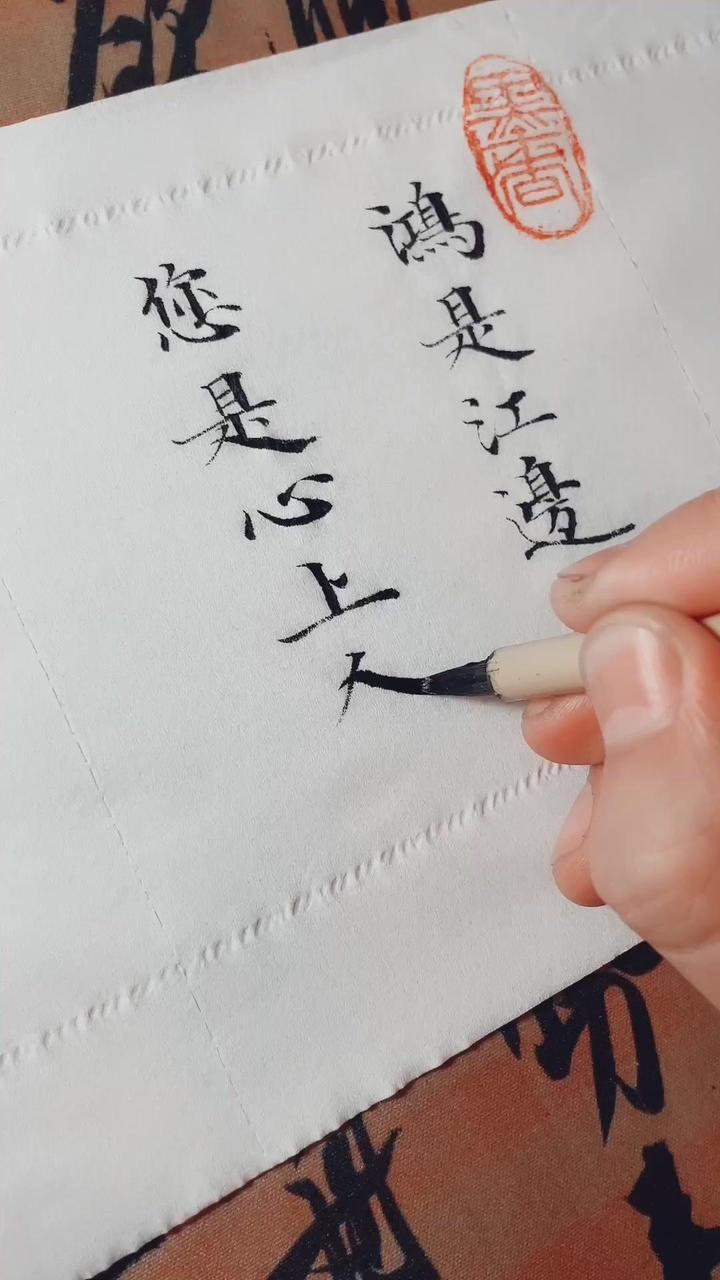 鴻是江邊
您是心上人